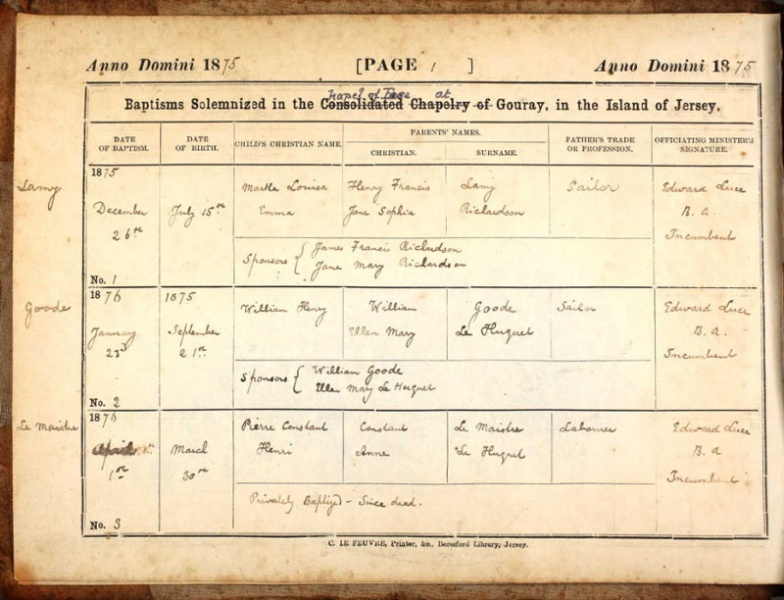 Anno Domini 1875 [PAGE 1 ] Anno Domini 1875
Chapel of Ease at
Baptisms Solemnized in the Consolidated Chapelry of Gouray, in the Island of Jersey.
DATE OF BAPTISM. DATE OF BIRTH. CHILD'S CHRISTIAN NAME. PARENTS' NAMES. CHRISTIAN. SURNAME. FATHER'S TRADE OR PROFESSION. OFFICIATING MINISTER'S SIGNATURE.
1875
Lamy Martha Louisa Henry Francis Lamy Sailor Edward Luce
December July 15th Emma Jane Sophia Richardson B. A.
26th Incumbent
Sponsors { James Francis Richardson
Jane Mary Richardson
No. 1
1876 1875
Goode William Henry William Goode Sailor Edward Luce
January September Ellen Mary Le Huquet B. A.
23d 21st Incumbent
Sponsors { William Goode
Ellen Mary Le Huquet
No. 2
1876
Le Maistre Pierre Constant Constant Le Maistre Labourer Edward Luce
April March Henri Anne Le Huquet B. A
1st 30th Incumbent
Privately Baptized - Since dead.
No. 3
C. LE FEUVRE, Printer, &c., Beresford Library, Jersey.